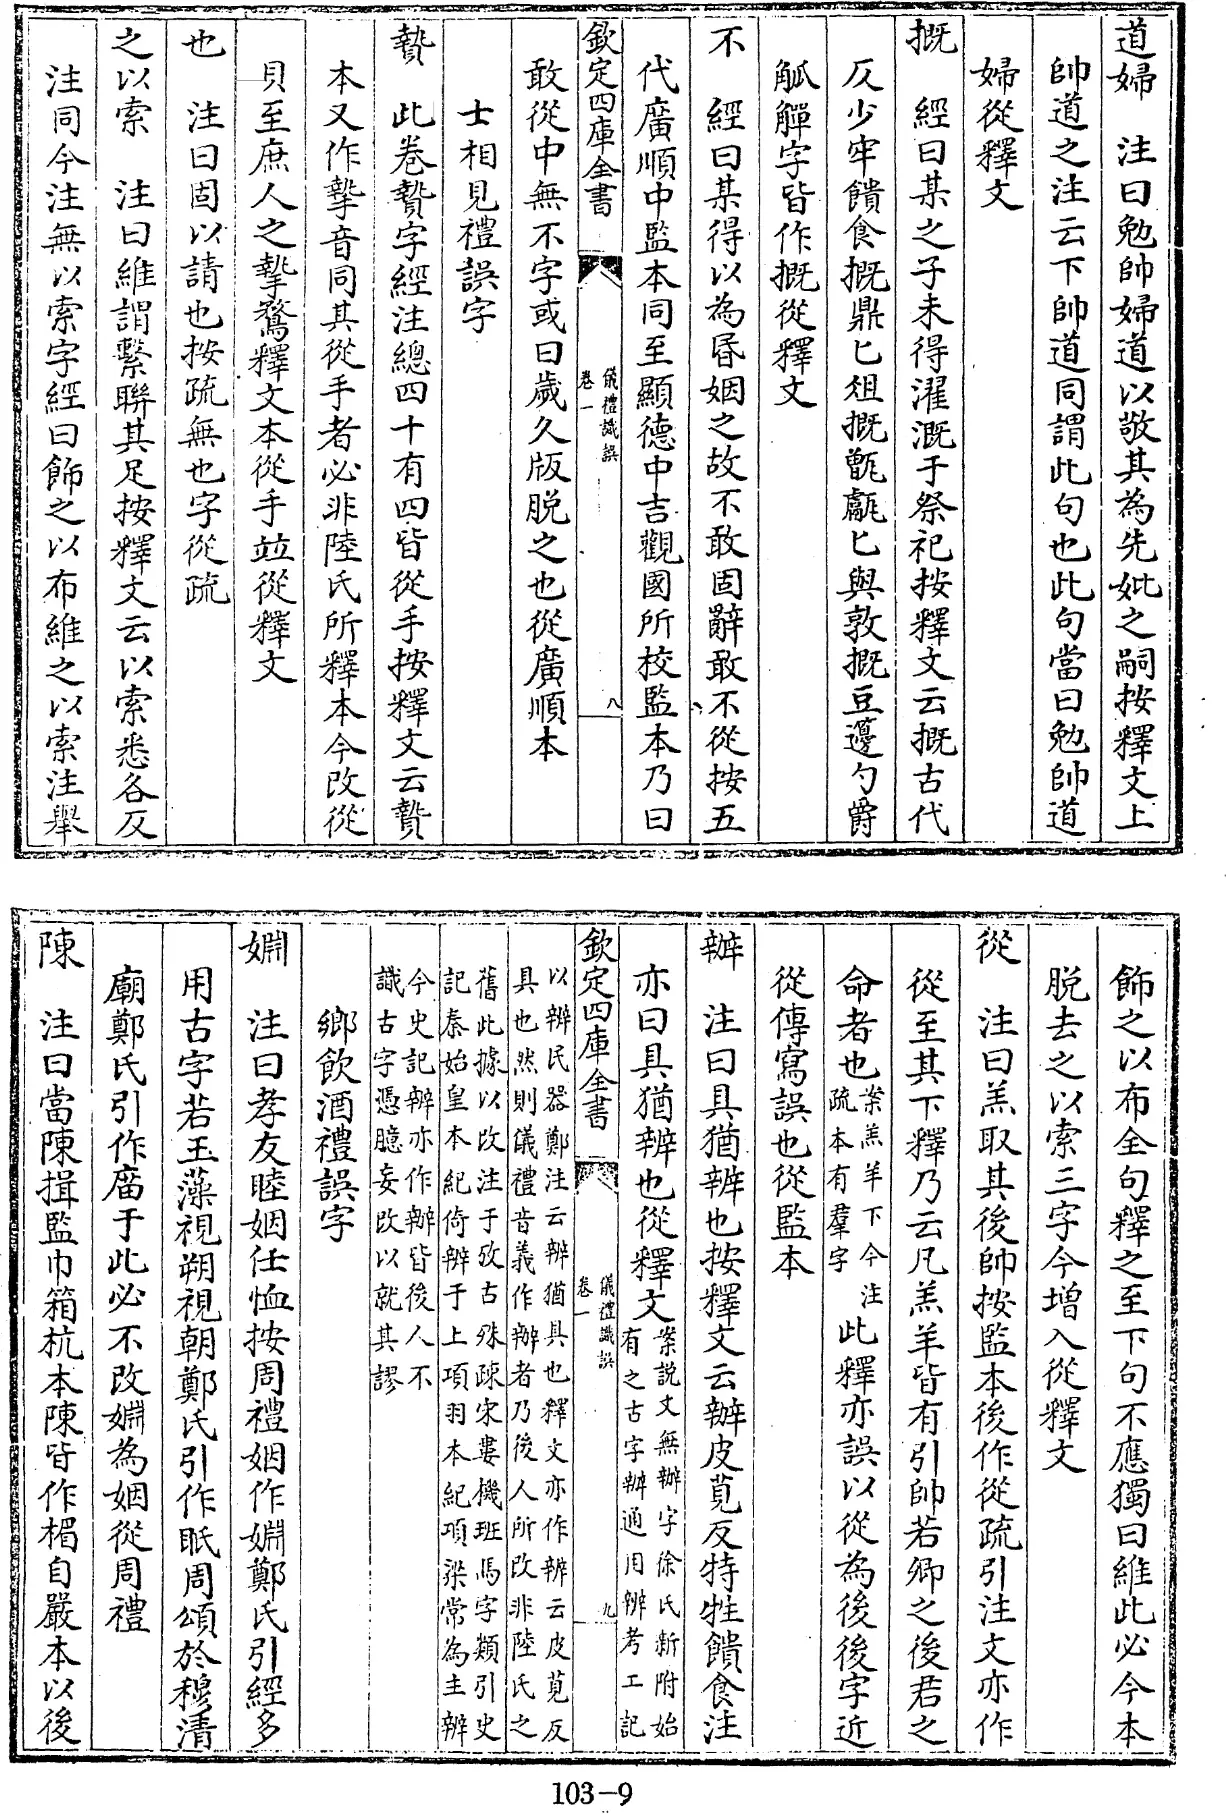 道婦　注曰勉帥婦道以敬其為先妣之嗣按釋文上
帥道之注云下帥道同謂此句也此句當曰勉帥道
婦從釋文
摡　經曰某之子未得濯溉于祭祀按釋文云摡古代
反少牢饋食摡鼎匕俎摡甑甗匕與敦摡豆籩勺爵
觚觶字皆作摡從釋文
不　經曰某得以為昏姻之故不敢固辭敢不從按五
代廣順中監本同至顯德中吉觀國所校監本乃曰
欽定四庫全書
儀禮識誤
卷一
八
敢從中無不字或曰歲久版脱之也從廣順本
士相見禮誤字
贄　此卷贄字經注總四十有四皆從手按釋文云贄
本又作摯音同其從手者必非陸氏所釋本今改從
貝至庶人之摯鶩釋文本從手並從釋文
也　注曰固以請也按疏無也字從疏
之以索　注曰維謂繫聯其足按釋文云以索悉各反
注同今注無以索字經曰飾之以布維之以索注舉
飾之以布全句釋之至下句不應獨曰維此必今本
脱去之以索三字今增入從釋文
從　注曰羔取其後帥按監本後作從疏引注文亦作
從至其下釋乃云凡羔羊皆有引帥若卿之後君之
命者也案羔羊下今注疏本有羣字此釋亦誤以從為後後字近
從傳寫誤也從監本
辦　注曰具猶辨也按釋文云辦皮莧反特牲饋食注
亦曰具猶辨也從釋文案説文無辦字徐氏新附始有之古字辨通用辦考工記
欽定四庫全書
儀禮識誤
卷一
九
以辨民器鄭注云辨猶具也釋文亦作辨云皮莧反
具也然則儀禮音義作辦者乃後人所改非陸氏之
舊此據以改注于攷古殊疎宋婁機班馬字類引史
記秦始皇本紀倚辨于上項羽本紀項梁常為主辨
今史記辨亦作辦皆後人不
識古字憑臆妄改以就其謬
鄉飲酒禮誤字
婣　注曰孝友睦姻任恤按周禮姻作婣鄭氏引經多
用古字若玉藻視朔視朝鄭氏引作眡周頌於穆清
廟鄭氏引作庿于此必不改婣為姻從周禮
陳　注曰當陳揖監巾箱杭本陳皆作楣自嚴本以後
103-9